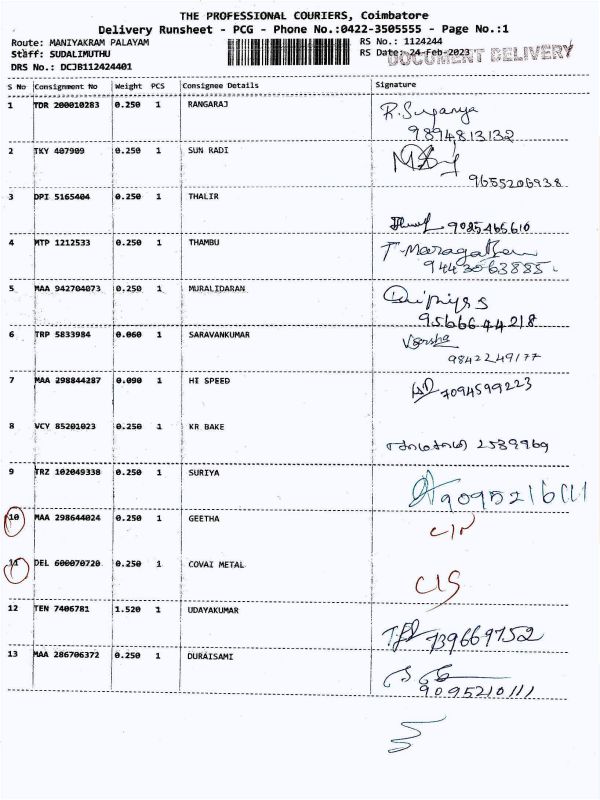 THE PROFESSIONAL COURIERS, Coimbatore
Delivery Runsheet - PCG - Phone No.:0422-3505555 - Page No.:1
Route: MANIYAKRAM PALAYAM RS No.: 1124244
Staff: SUDALIMUTHU RS Date: 24-Feb-2023
DOCUMENT DELIVERY
DRS No.: DCJB112424401
S No Consignment No Weight PCS Consignee Details Signature
1 TDR 200010283 0.250 1 RANGARAJ R. Suganya
9894813132
2 TKY 407909 0.250 1 SUN RADI
9655206938
3 DPI 5165404 0.250 1 THALIR
9025465610
4 MTP 1212533 0.250 1 THAMBU
9443063885.
5 MAA 942704073 0.250 1 MURALIDARAN
9566644218
6 TRP 5833984 0.060 1 SARAVANKUMAR Varsha
9842249177
7 MAA 298844287 0.090 1 HI SPEED
7094599223
8 VCY 85201023 0.250 1 KR BAKE
2539969
9 TRZ 102049338 0.250 1 SURIYA
10 MAA 298644024 0.250 1 GEETHA
11 DEL 600070720 0.250 1 COVAI METAL
12 TEN 7406781 1.520 1 UDAYAKUMAR
739669752
13 MAA 286706372 0.250 1 DURAISAMI
9095210111